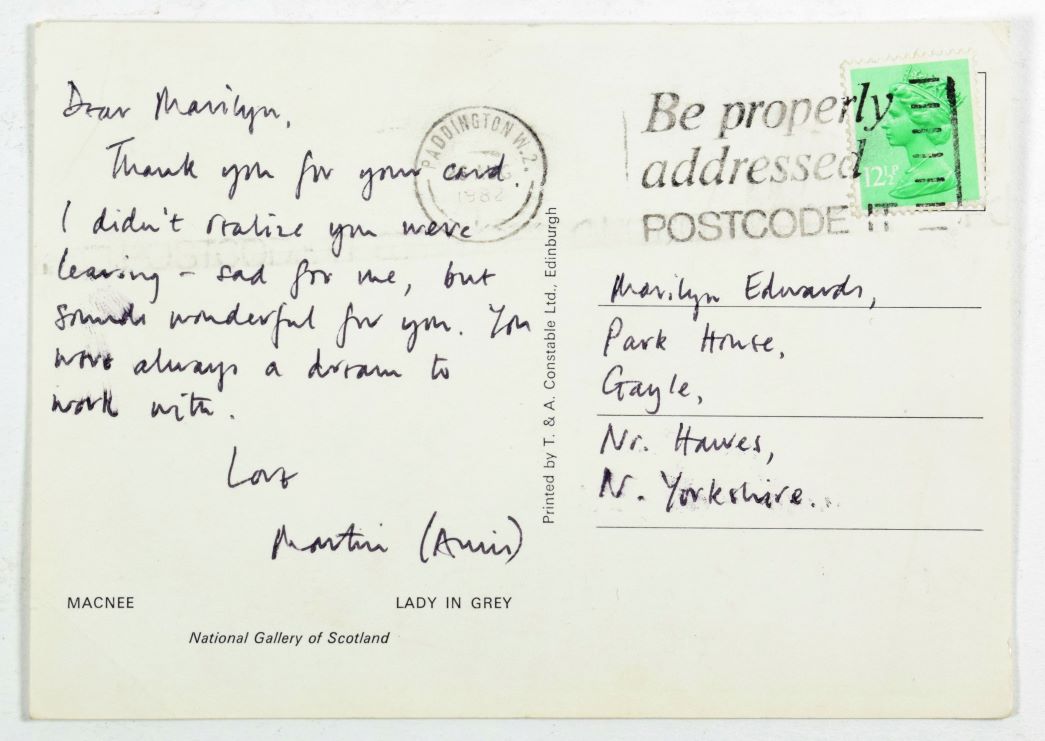 Dear Marilyn,
Thank you for your card.
I didn't realize you were
leaving – sad for me, but
sounds wonderful for you. You
were always a dream to
work with.
Love
Martin (Amis)
MACNEE
LADY IN GREY
National Gallery of Scotland
Printed by T. & A. Constable Ltd., Edinburgh
PADDINGTON W.2.
1982
Be properly
addressed
POSTCODE IT
12½P
Marilyn Edwards,
Park House,
Gayle,
Nr. Hawes,
N. Yorkshire.